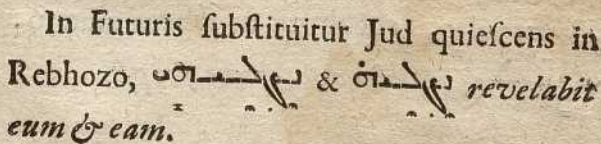 In Futuris ſubſtituitur Jud quieſcens in
Rebhozo, ܢܓܠܝܘܗܝ & ܢܓܠܝܗ̇ revelabit
eum & eam.